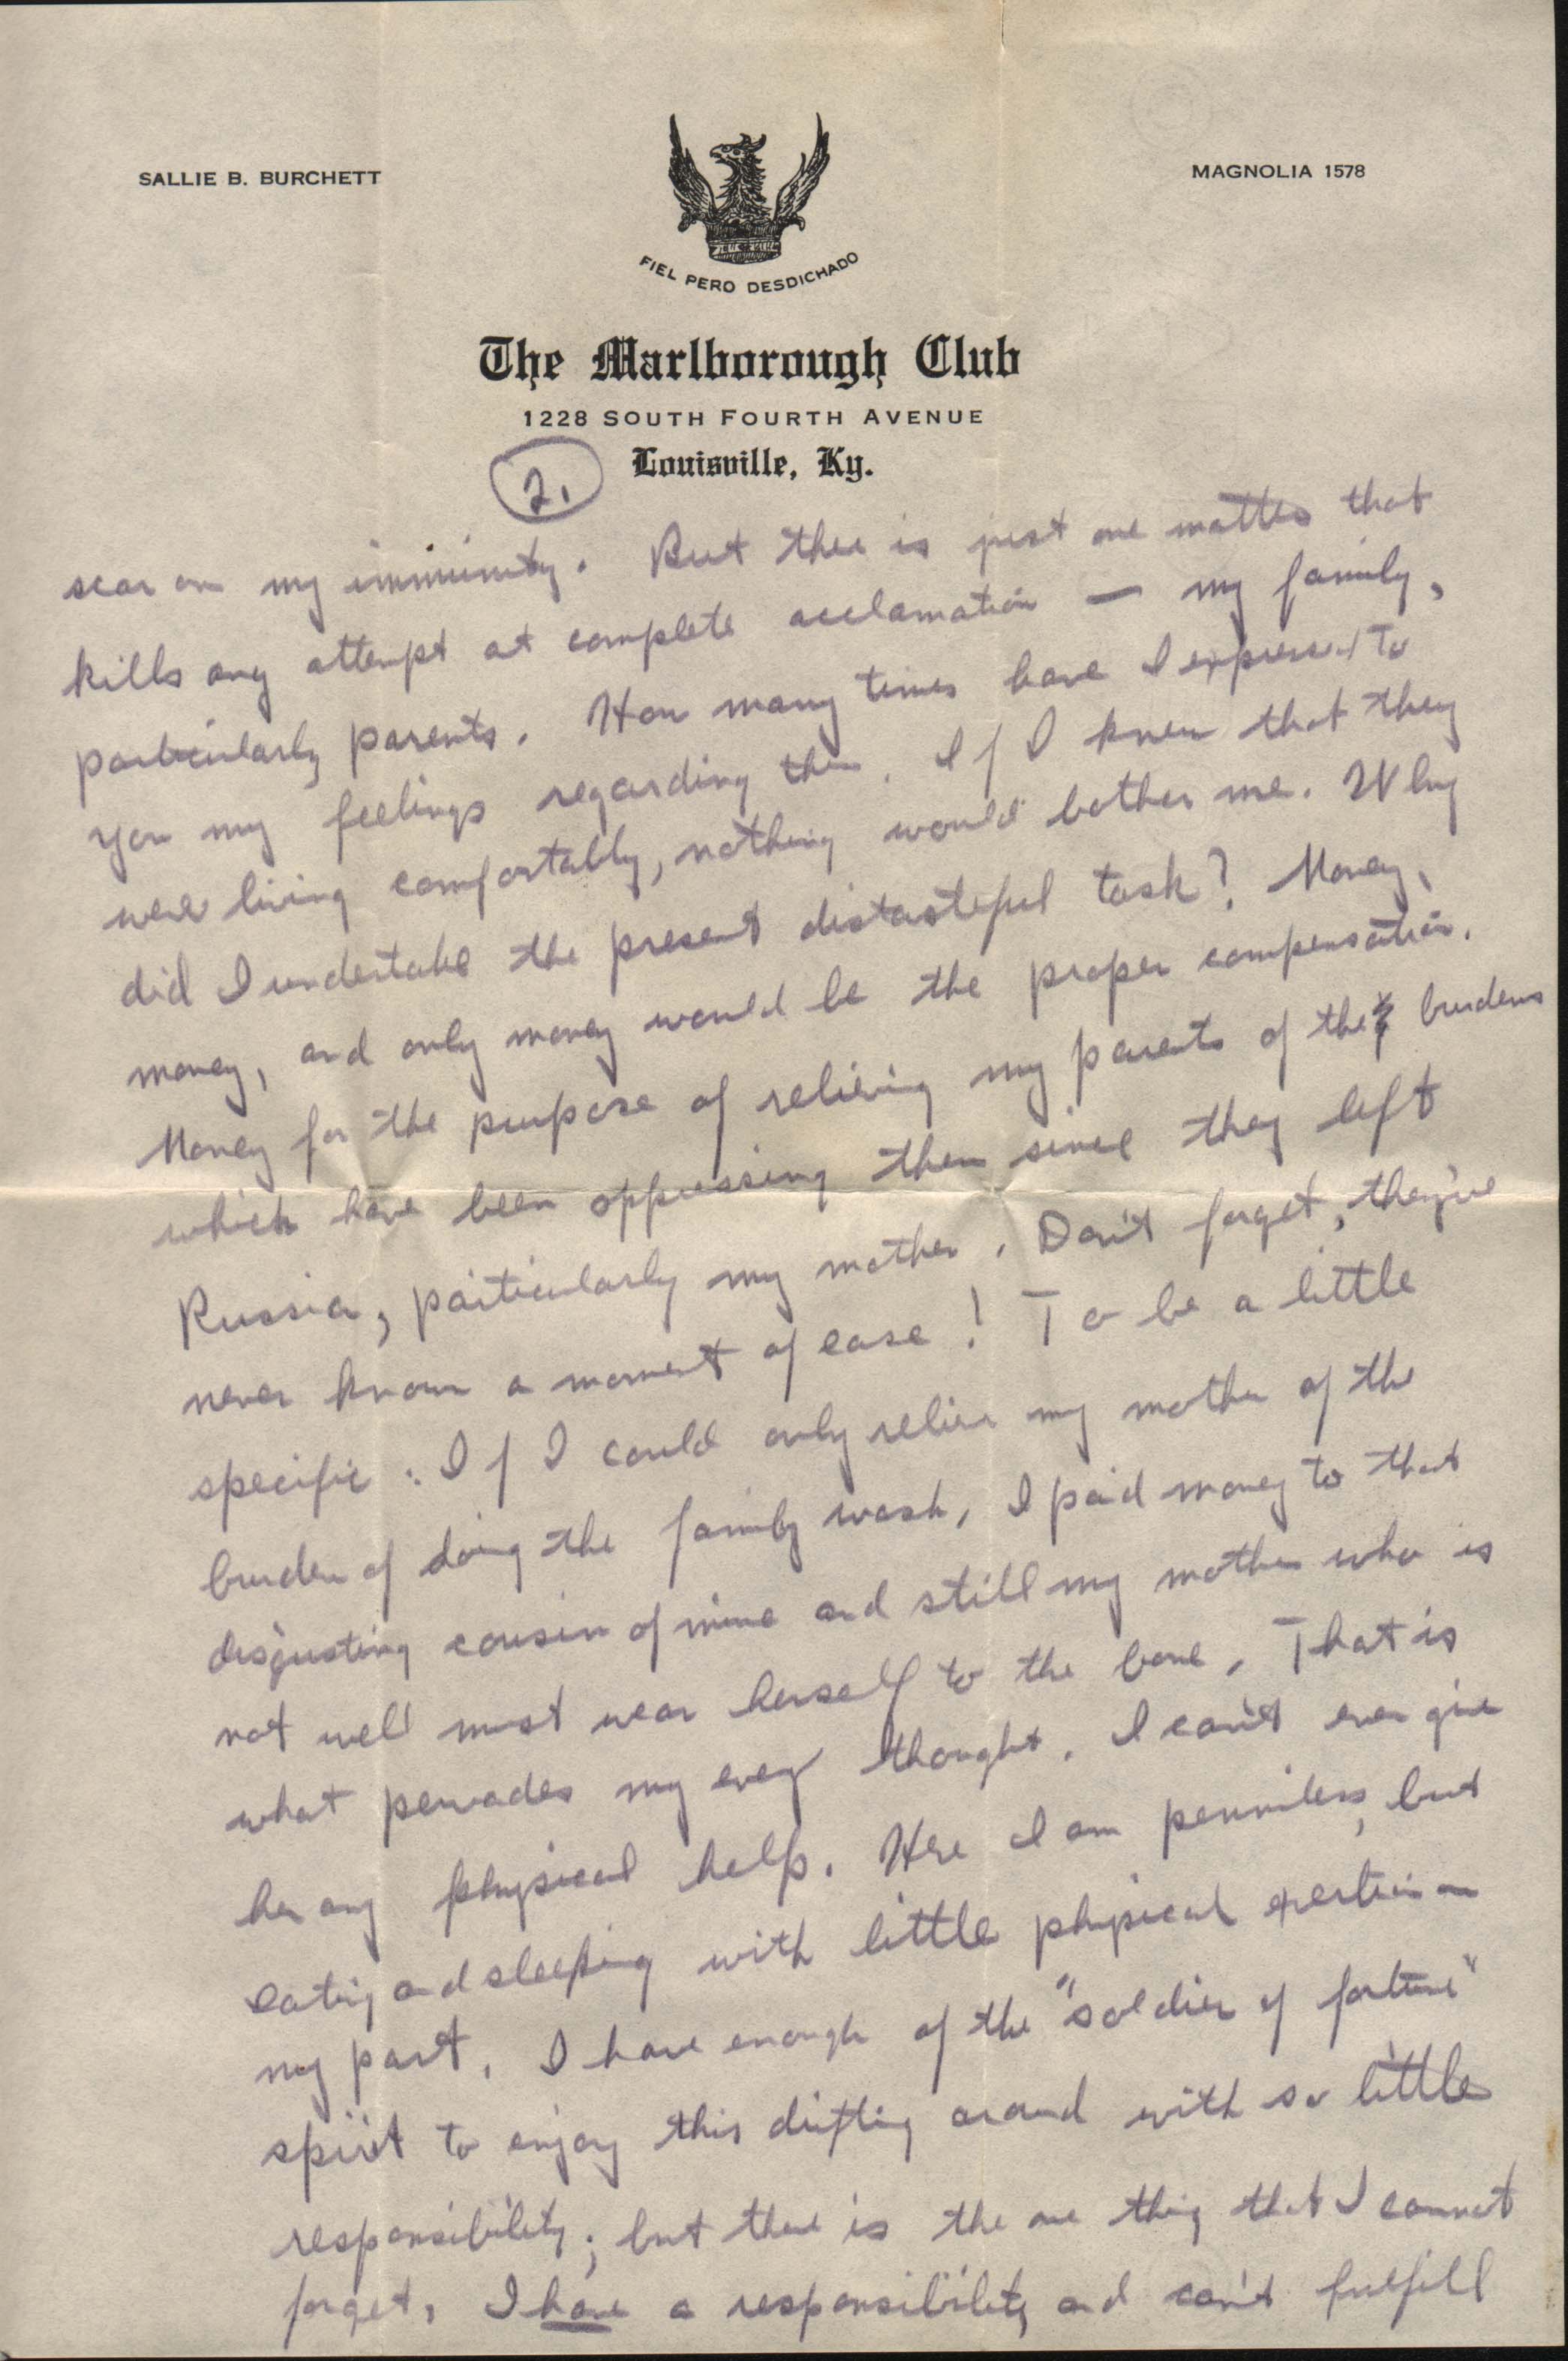 SALLIE B. BURCHETT
MAGNOLIA 1578
FIEL PERO DESDICHADO
The Marlborough Club
1228 SOUTH FOURTH AVENUE
Louisville, Ky.
2.
scar on my immunity. But there is just one matter that
kills any attempt at complete acclamation — my family,
particularly parents. How many times have I expressed to
you my feelings regarding them. If I knew that they
were living comfortably, nothing would bother me. Why
did I undertake the present distasteful task? Money,
money, and only money would be the proper compensation.
Money for the purpose of relieving my parents of the burdens
which have been oppressing them since they left
Russia, particularly my mother. Don't forget, they've
never known a moment of ease! To be a little
specific: If I could only relieve my mother of the
burden of doing the family wash, I paid money to that
disgusting cousin of mine and still my mother who is
not well must wear herself to the bone. That is
what pervades my every thought. I can't even give
her any physical help. Here I am penniless, but
eating and sleeping with little physical exertion on
my part. I have enough of the "soldier of fortune"
spirit to enjoy this drifting around with so little
responsibility; but there is the one thing that I cannot
forget, I have a responsibility and can't fulfill